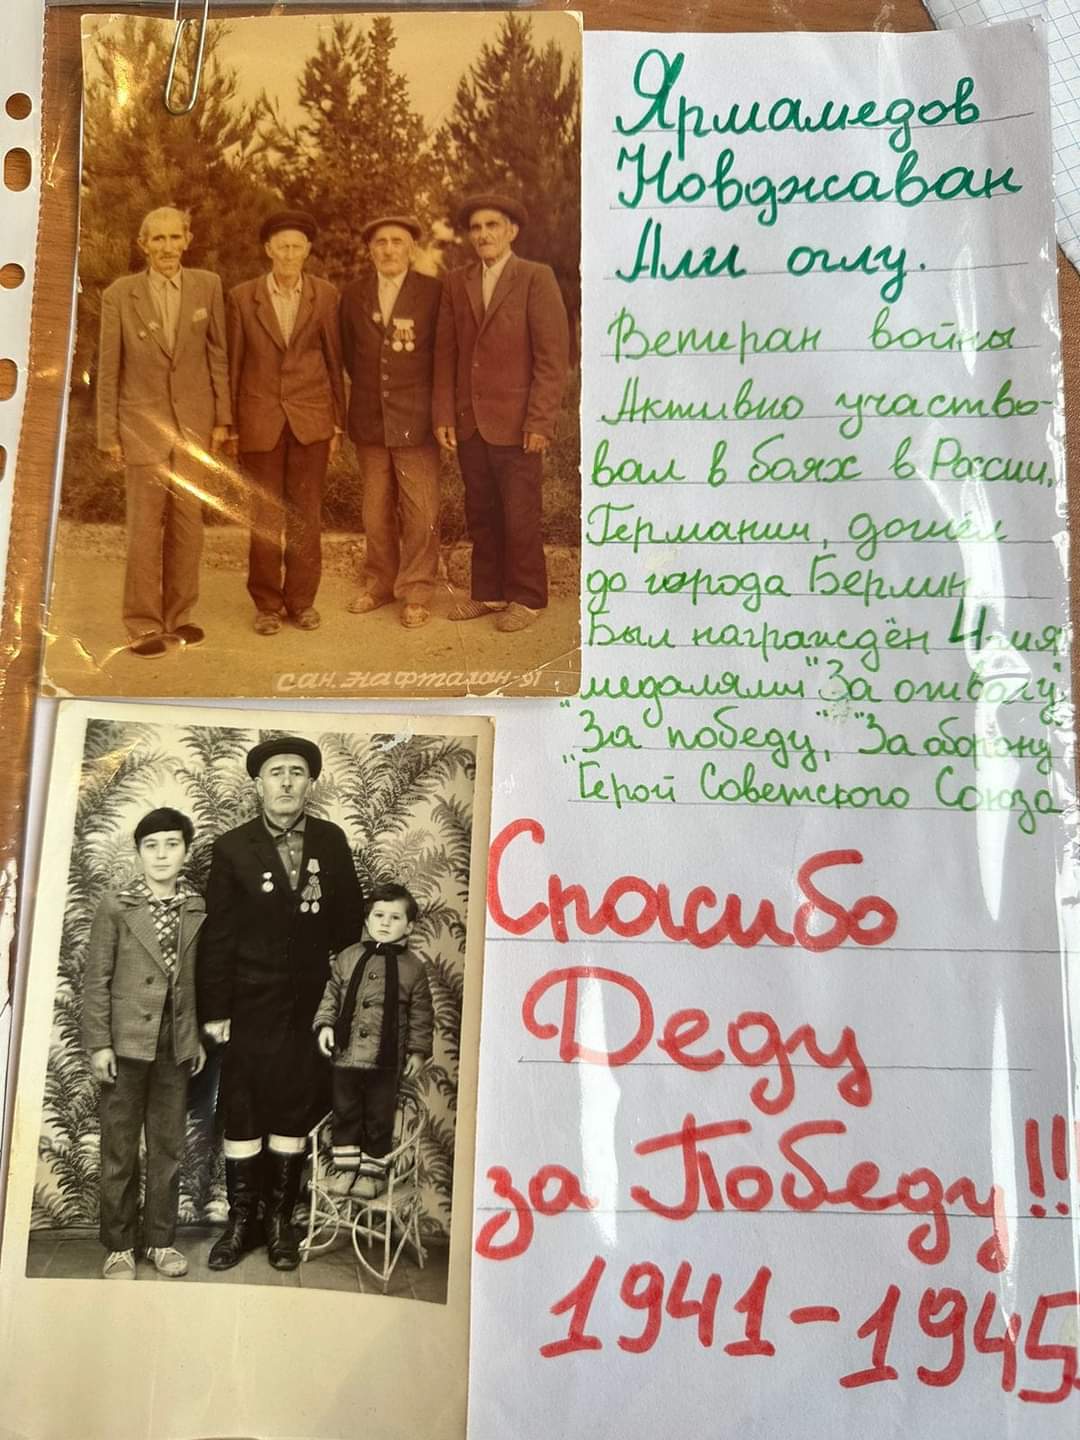 Ярмамедов
Новджаван
Али оглу.
Ветиран войны
Активно участво-
вал в боях в России,
Германии, дошёл
до города Берлин
Был награждён 4-мя
медалями "За отвагу"
"За победу," "За оборону
"Герой Советского Союза
сан. Нафталан-91
Спасибо
Деду
за Победу!!
1941-1945